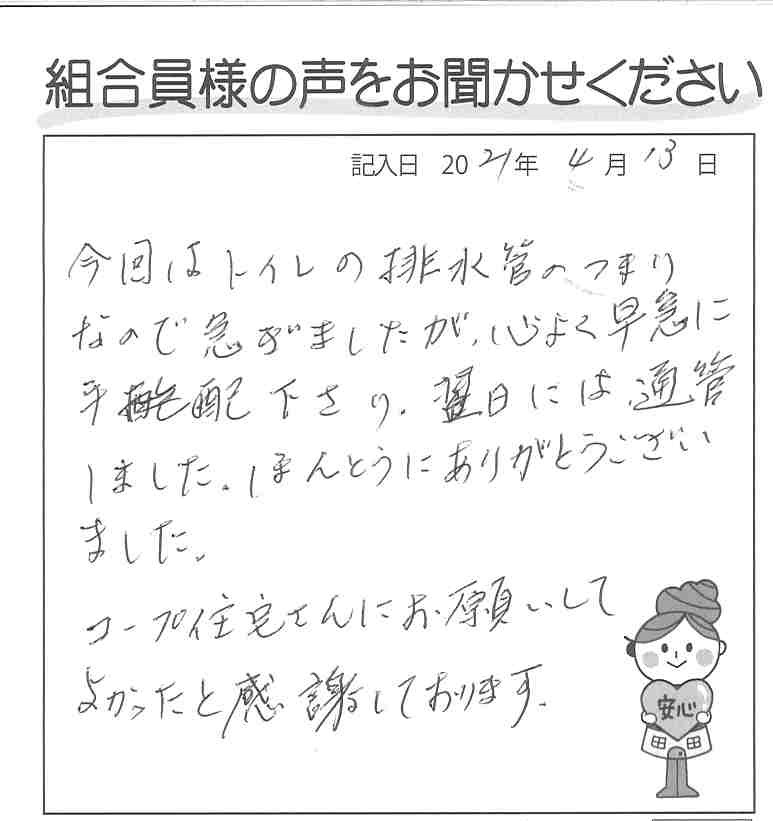 組合員様の声をお聞かせください
記入日 2021年 4月 13日
今回はトイレの排水管のつまり
なので急ぎましたが、心よく早急に
手配下さり、翌日には通管
しました。ほんとうにありがとうござい
ました。
コープ住宅さんにお願いして
よかったと感謝しております。
安心